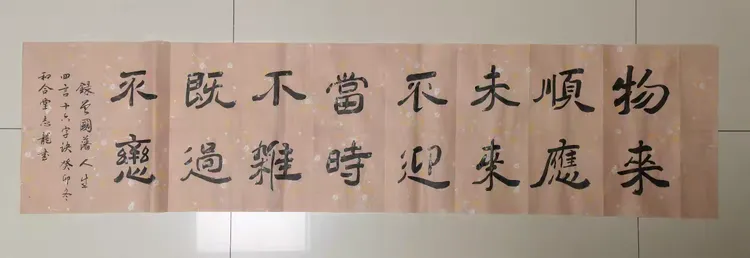 物来
順應
未来
不迎
當時
不雜
既過
不戀
錄曾國藩人生
四言十六字訣癸卯冬
和合堂志龍書